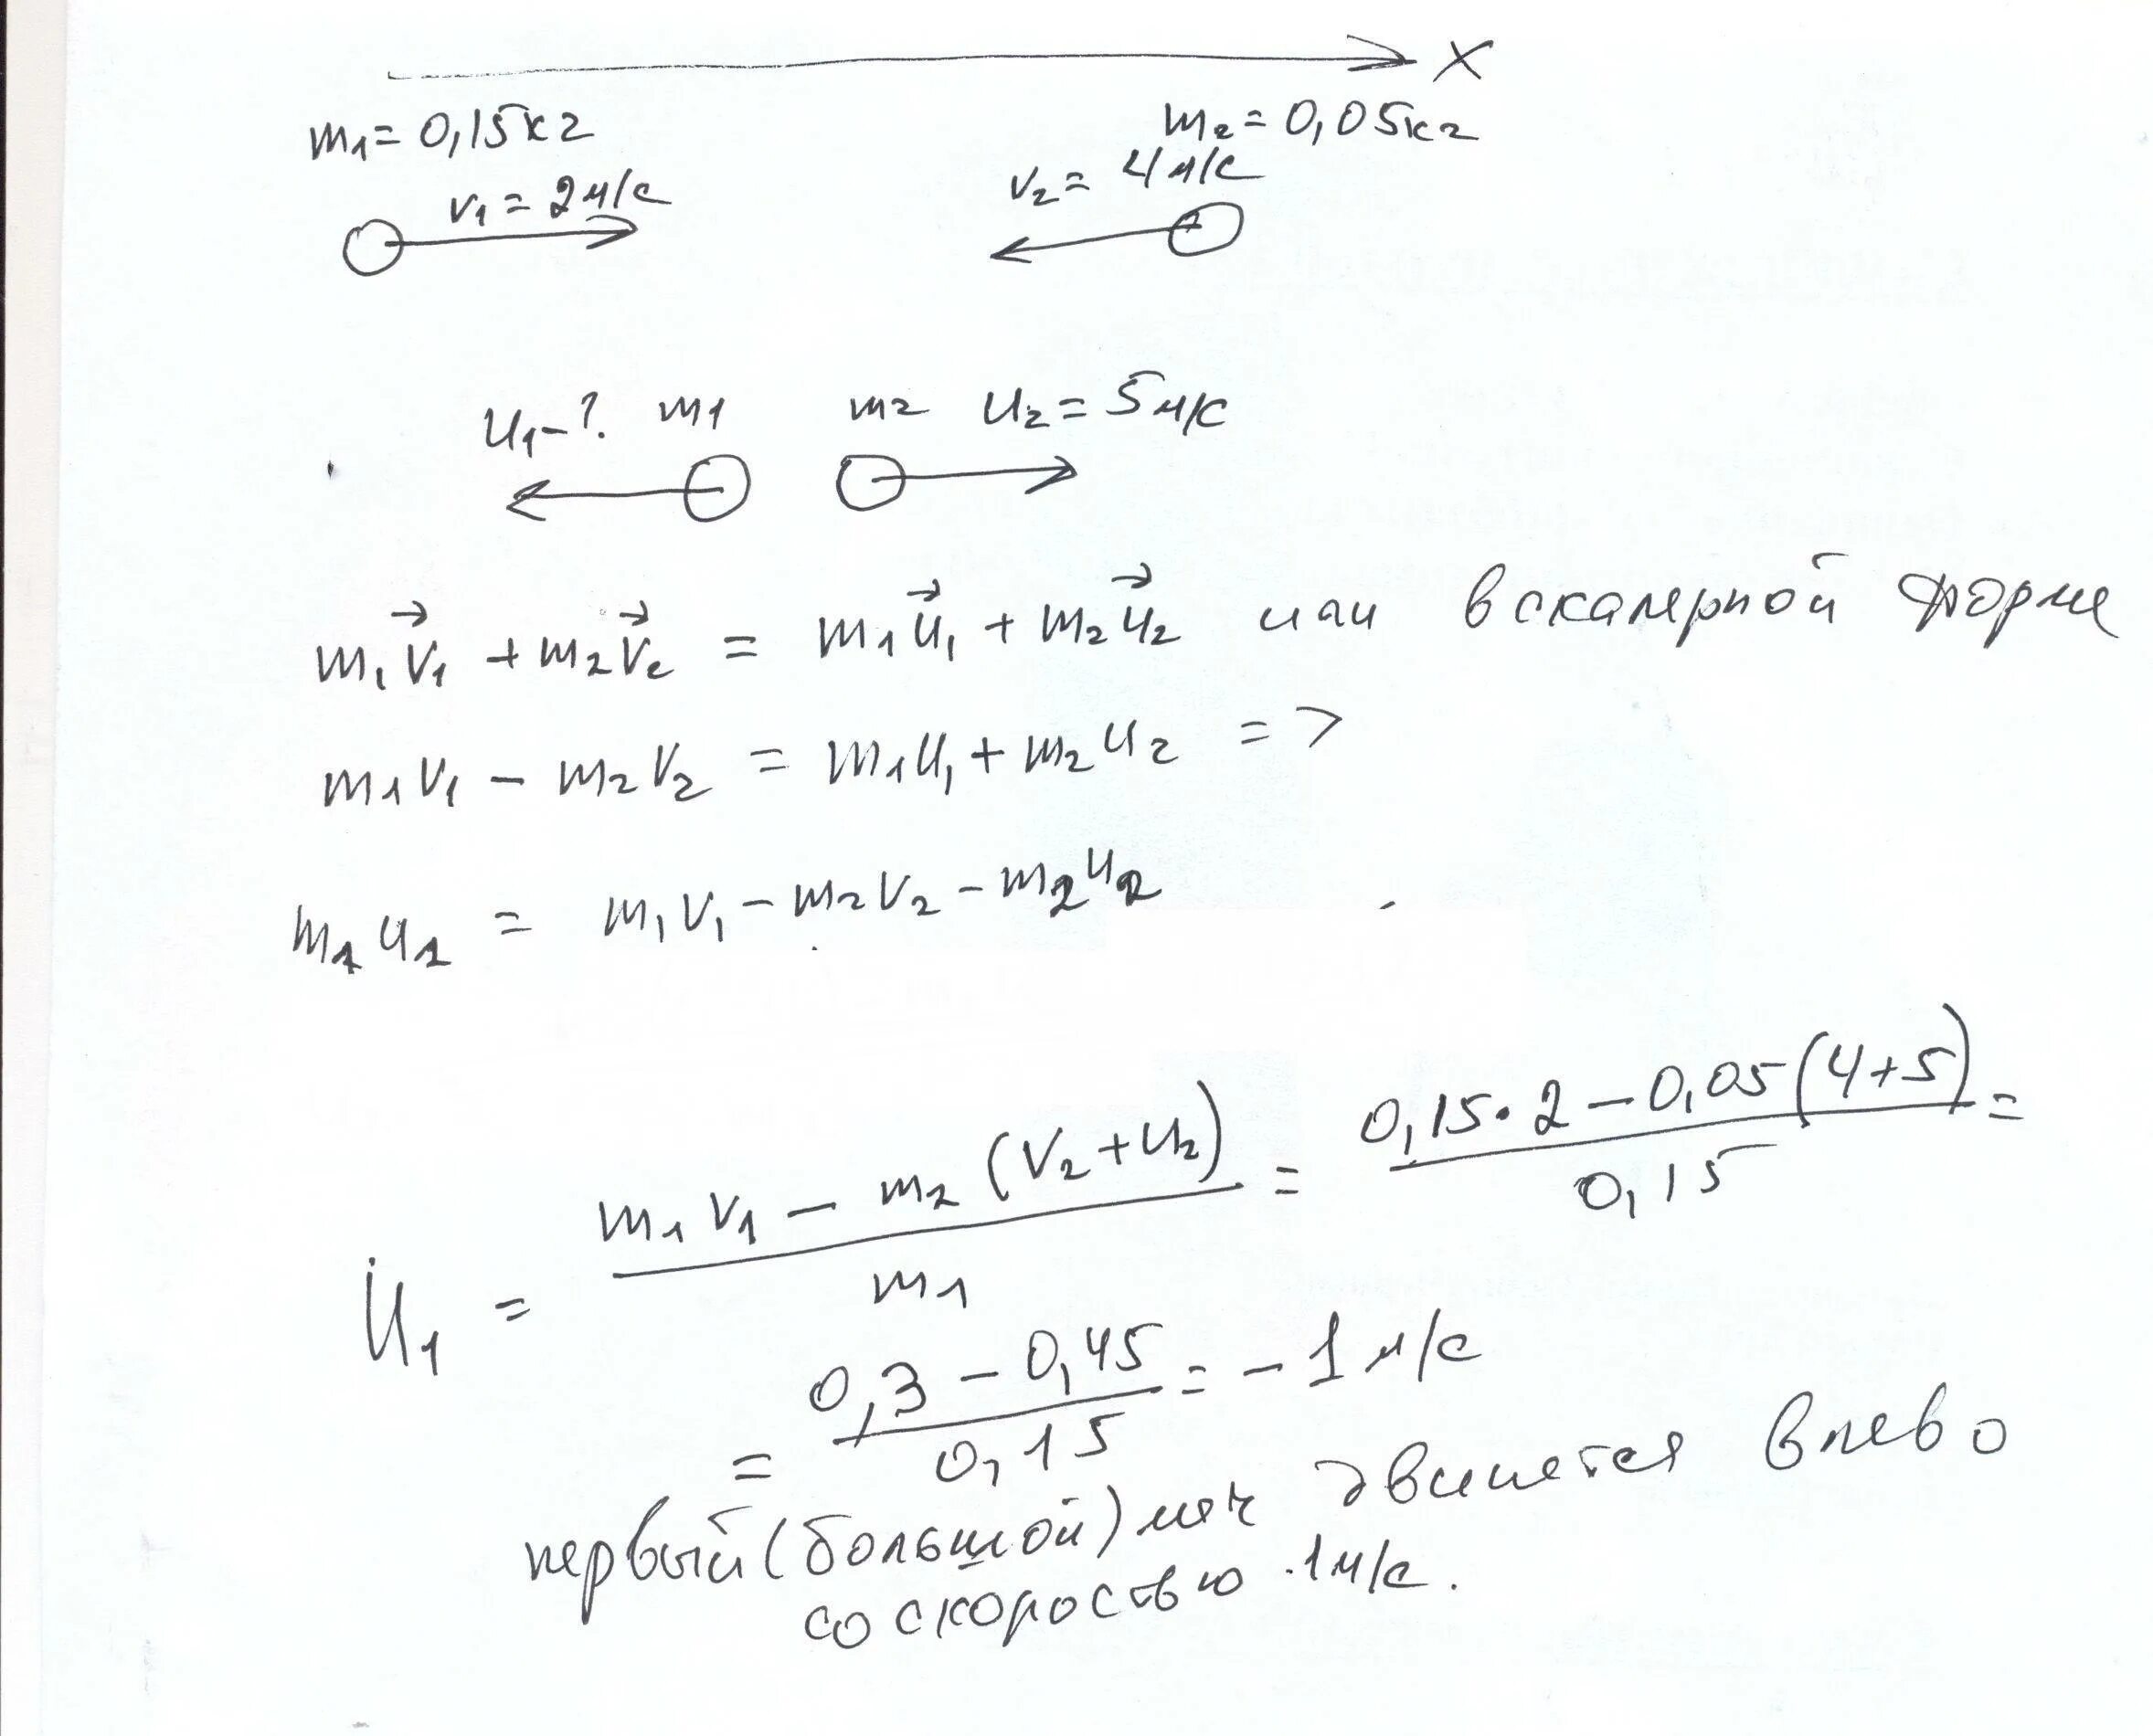 X
m₁ = 0,15кг
m₂ = 0,05кг
v₁ = 2м/с
v₂ = 4м/с
u₁ - ? m₁
m₂ u₂ = 5м/с
m₁v⃗₁ + m₂v⃗₂ = m₁u⃗₁ + m₂u⃗₂ или в скалярной форме
m₁v₁ - m₂v₂ = m₁u₁ + m₂u₂ =>
m₁u₁ = m₁v₁ - m₂v₂ - m₂u₂
u₁ = (m₁v₁ - m₂(v₂+u₂))/m₁ = (0,15·2 - 0,05(4+5))/0,15 =
= (0,3 - 0,45)/0,15 = -1м/с
первый (большой) мяч движется влево
со скоростью 1м/с.